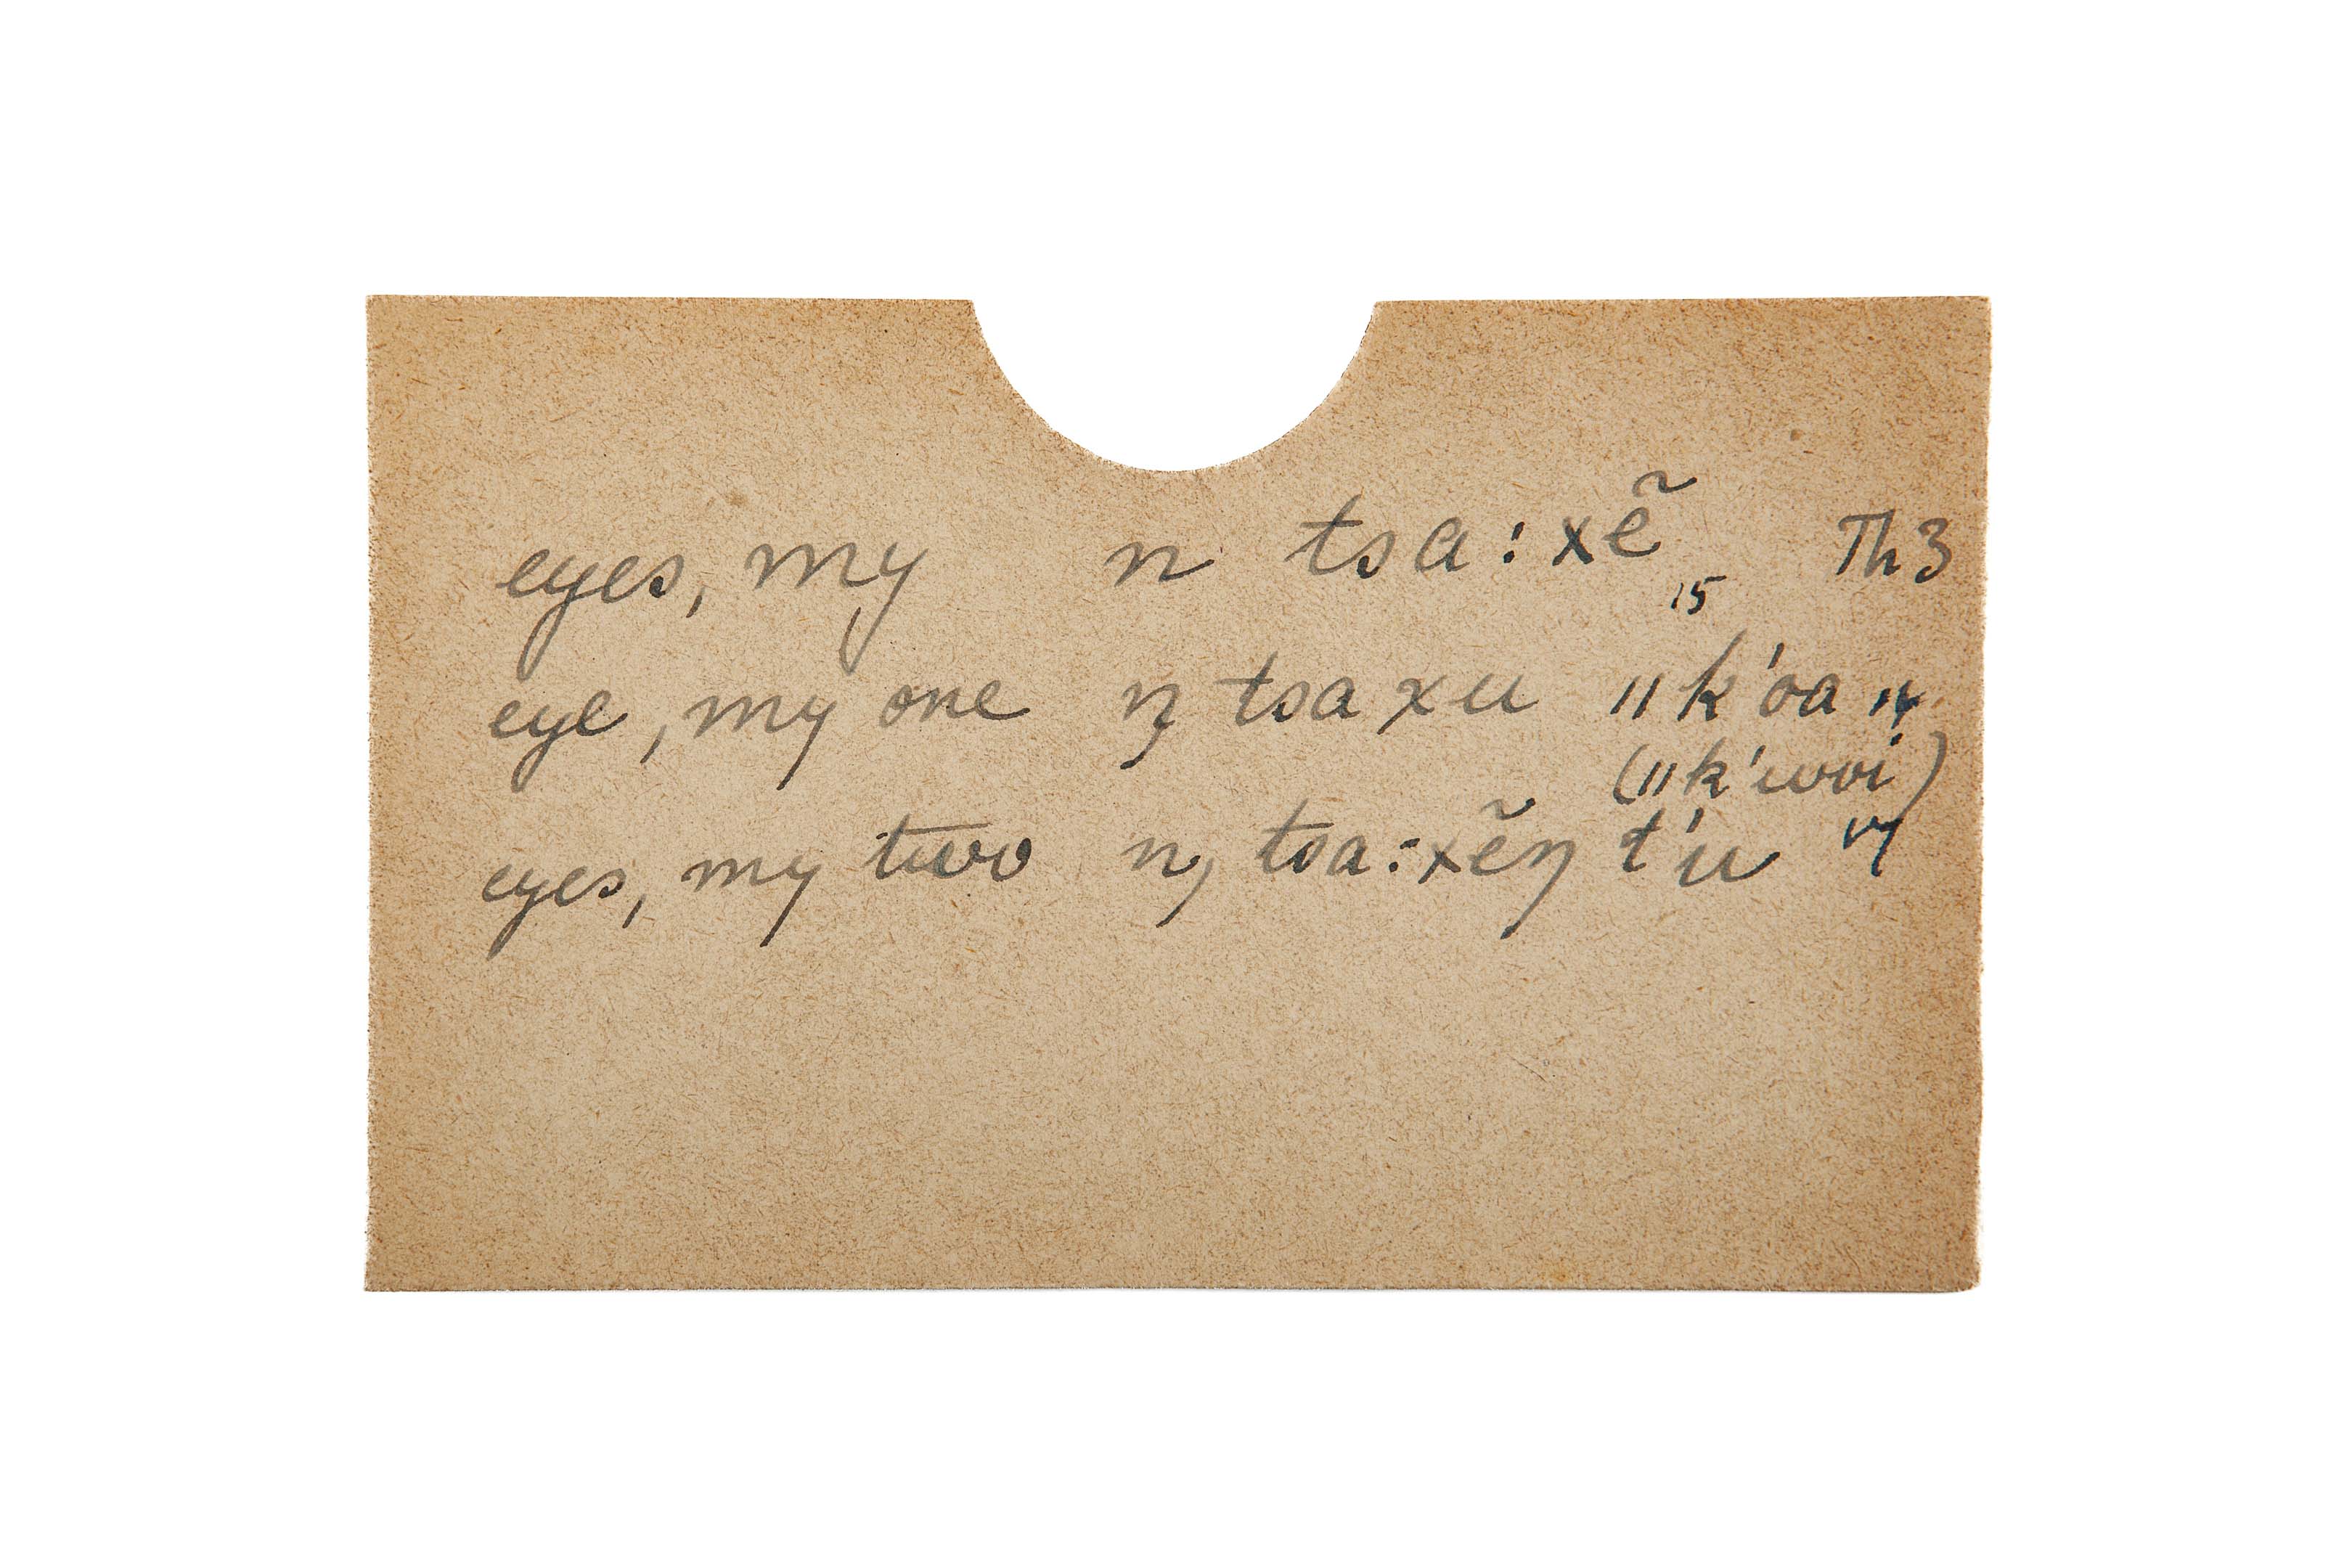 eyes, my n tsa:xẽ 15 Th3
eye, my one ŋ tsaxu ǁk'oa 14
(ǁk'woi)
eyes, my two ŋ tsa:xẽŋ t'u 17